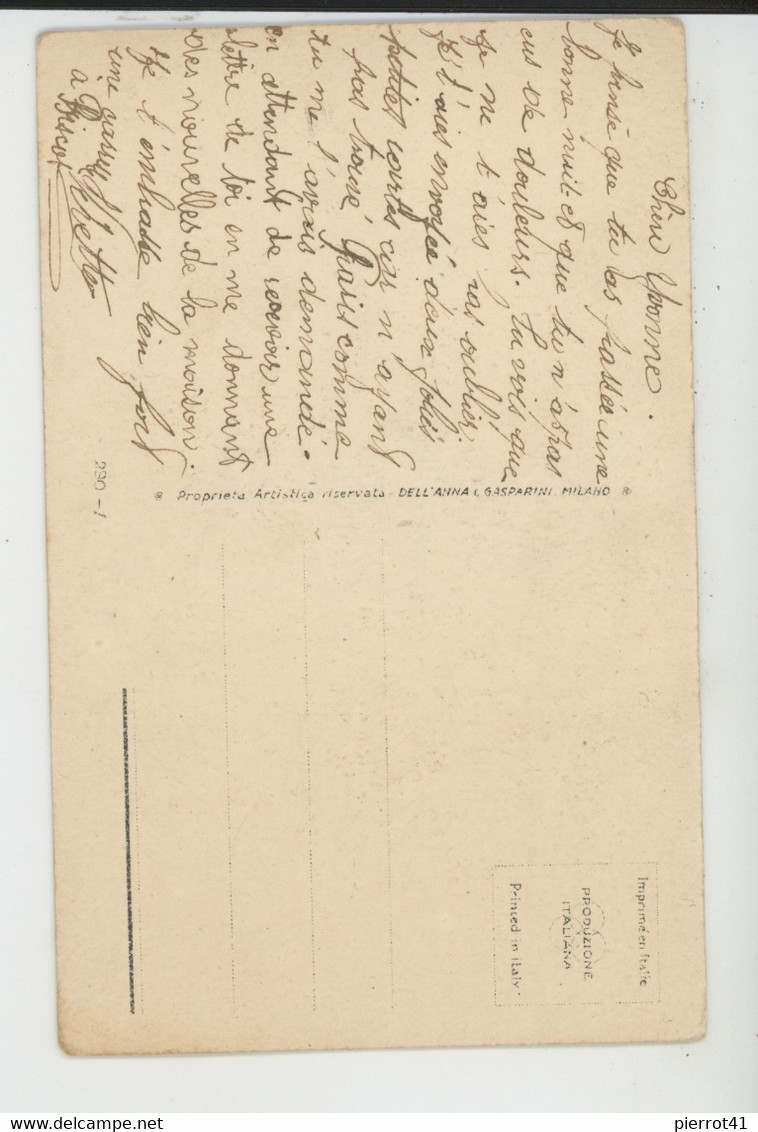 Chère Yvonne.
Je pense que tu as passée une
bonne nuit et que tu n'a pas
eus de douleurs. Tu vois que
je ne t'aies pas oublier
je t'aies envoyée deux jolies
petites cartes car n'ayant
pas trouvé Paris comme
tu me l'avais demandé.
en attendant de recevoir une
lettre de toi en me donnant
des nouvelles de la maison.
Je t'embrasse bien fort
une
à
290-1
Proprieta Artistica riservata - DELL'ANNA & GASPARINI. MILANO
Imprimé en Italie
PRODUZIONE
ITALIANA
Printed in Italy
pierrot41
delcampe.net